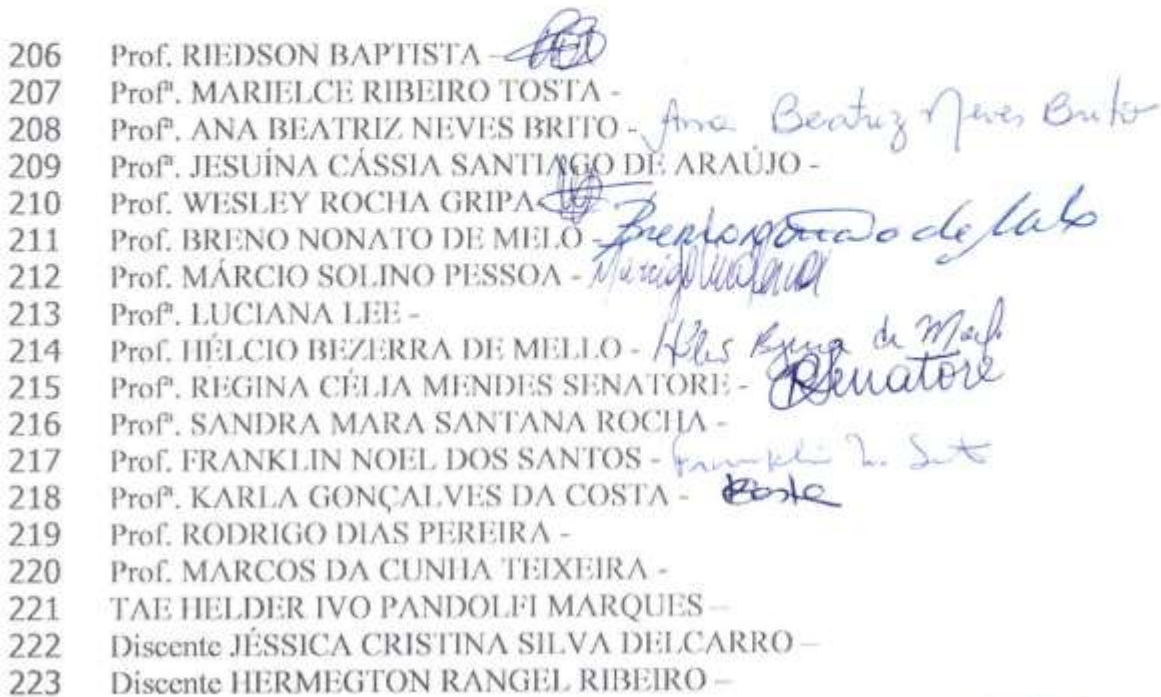 206 Prof. RIEDSON BAPTISTA -
207 Profª. MARIELCE RIBEIRO TOSTA -
208 Profª. ANA BEATRIZ NEVES BRITO - Ana Beatriz Neves Brito
209 Profª. JESUÍNA CÁSSIA SANTIAGO DE ARAÚJO -
210 Prof. WESLEY ROCHA GRIPA
211 Prof. BRENO NONATO DE MELO - de
212 Prof. MÁRCIO SOLINO PESSOA -
213 Profª. LUCIANA LEE -
214 Prof. HÉLCIO BEZERRA DE MELLO - de
215 Profª. REGINA CÉLIA MENDES SENATORE - RSenatore
216 Profª. SANDRA MARA SANTANA ROCHA -
217 Prof. FRANKLIN NOEL DOS SANTOS - Franklin N.
218 Profª. KARLA GONÇALVES DA COSTA - Costa
219 Prof. RODRIGO DIAS PEREIRA -
220 Prof. MARCOS DA CUNHA TEIXEIRA -
221 TAE HELDER IVO PANDOLFI MARQUES –
222 Discente JÉSSICA CRISTINA SILVA DELCARRO –
223 Discente HERMEGTON RANGEL RIBEIRO –